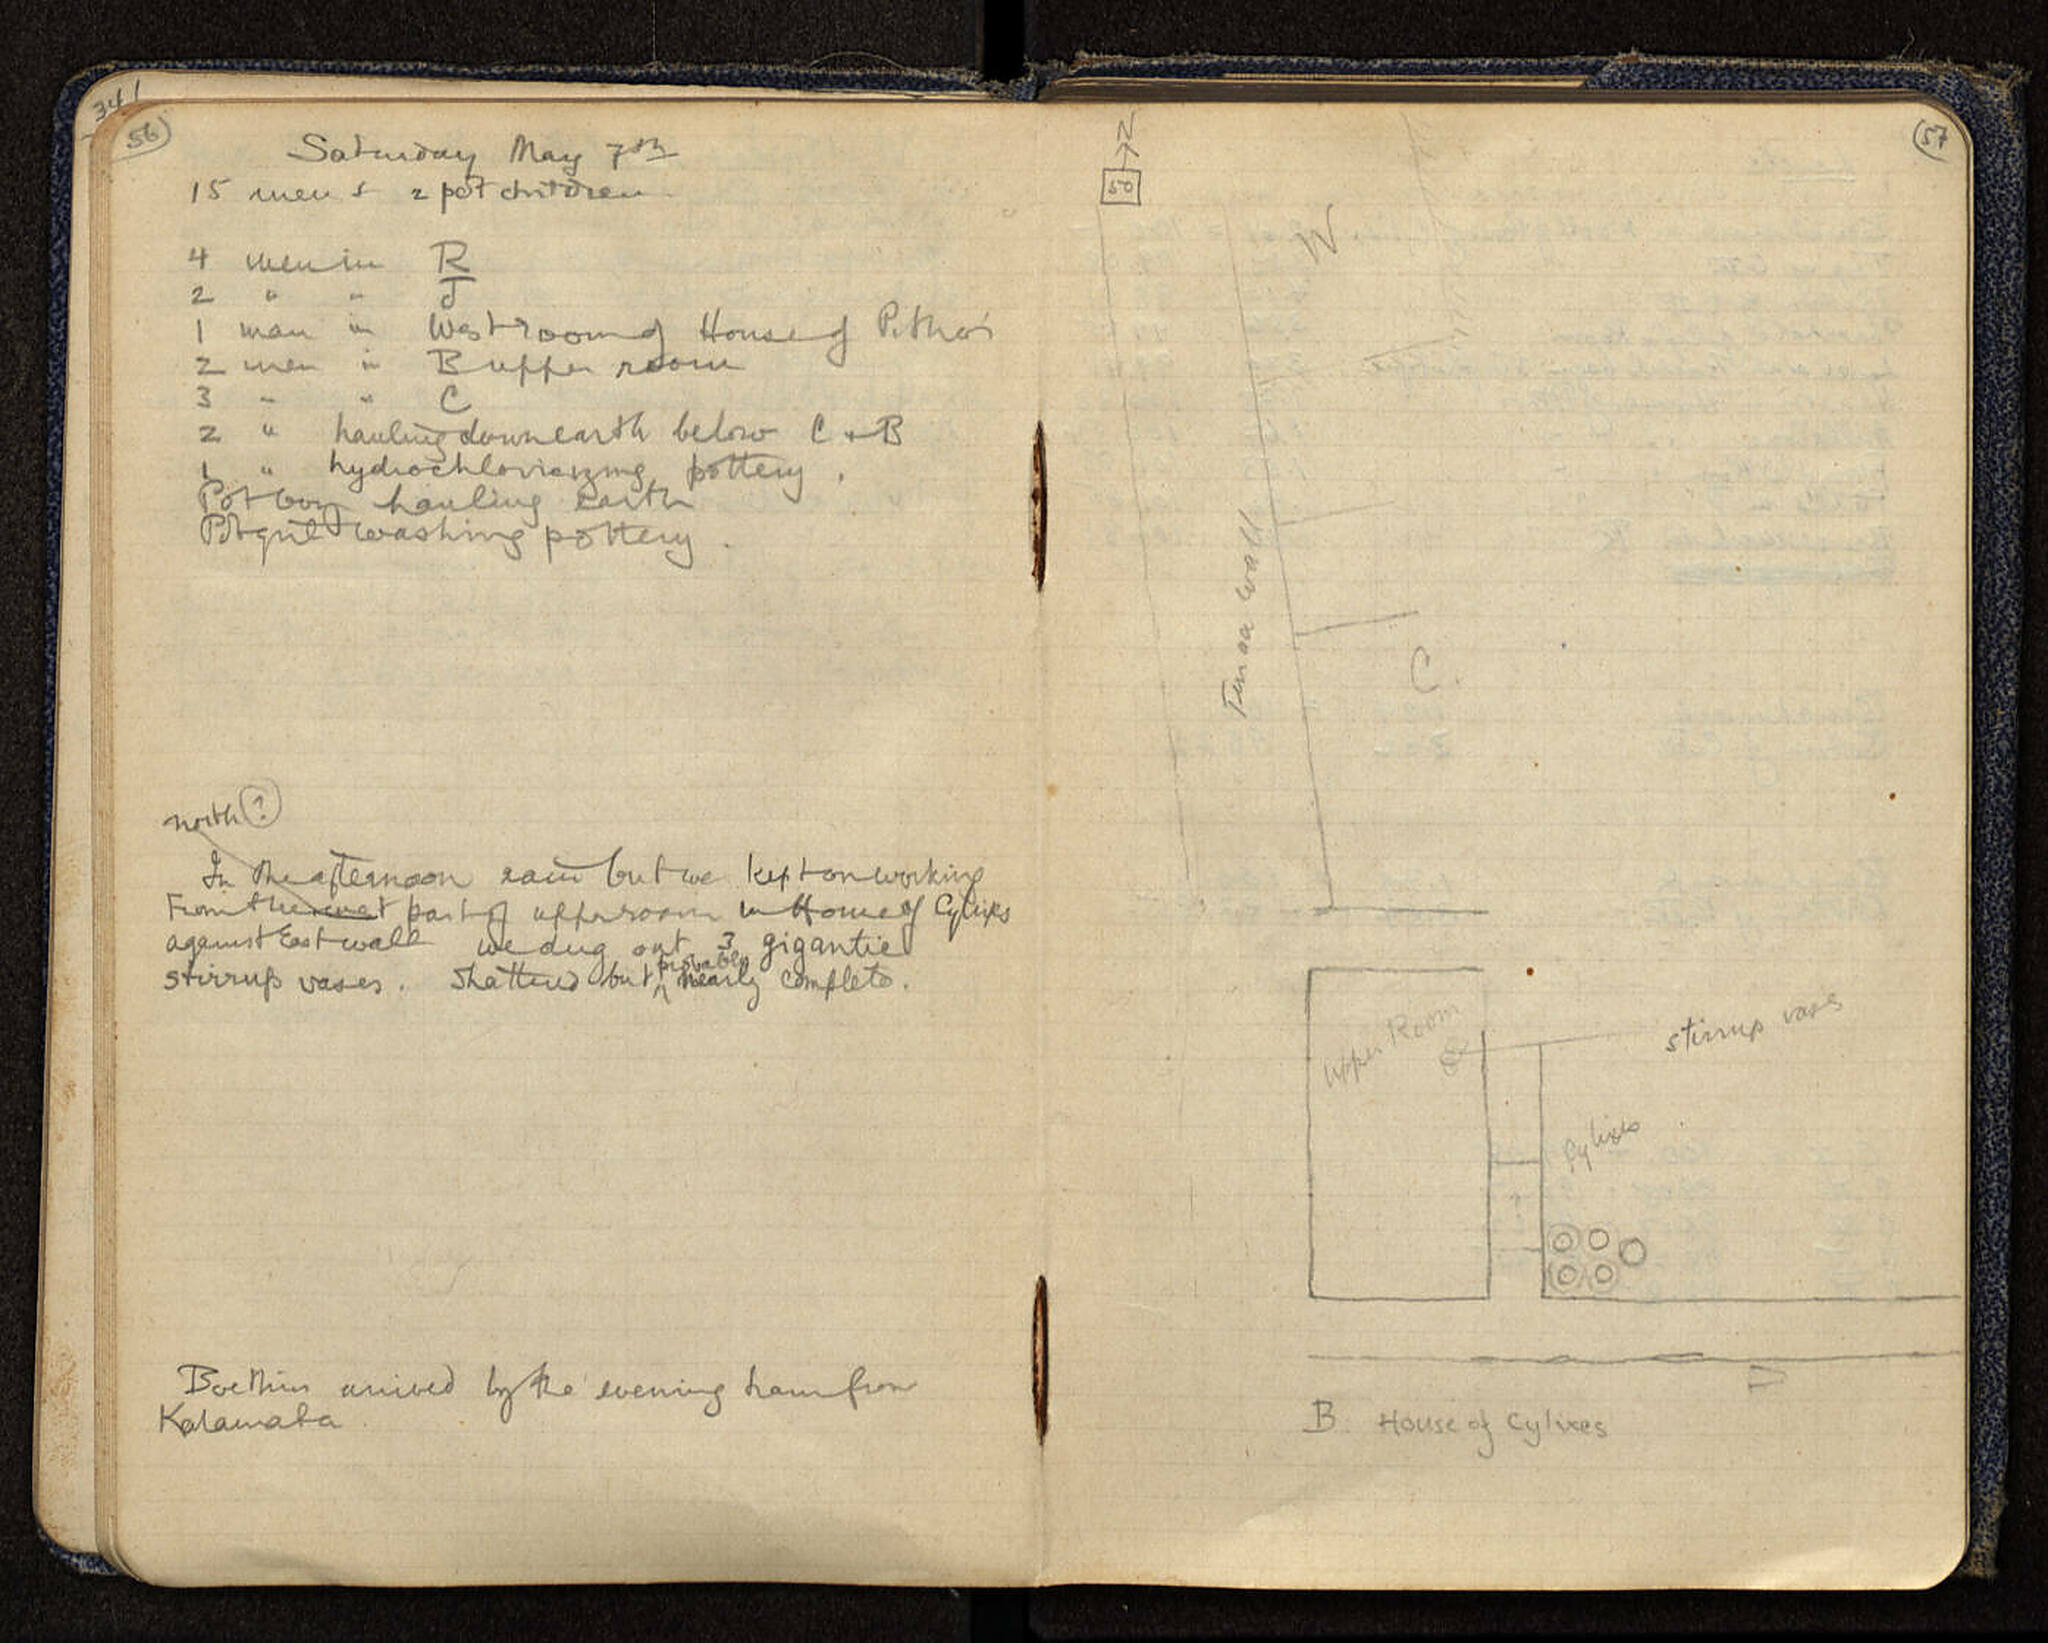 341
56
Saturday May 7th
15 men & 2 pot children.
4 men in R
2 " " J
1 man in West room of House of Pithoi
2 men in B upper room
3 " " C
2 " hauling down earth below C + B
1 " hydrochloricizing pottery.
Pot boy hauling earth
Pot girl washing pottery.
north ?
In the afternoon rain but we kept on working
From the west part of upper room in House of Cylixes
against East wall we dug out 3 gigantic
probably
stirrup vases. Shattered but ^ nearly complete.
Boethius arrived by the evening train from
Kalamata
57
N
50
W
Terrace Wall
C.
Upper Room
stirrup vases
Cylixes
?
B House of Cylixes